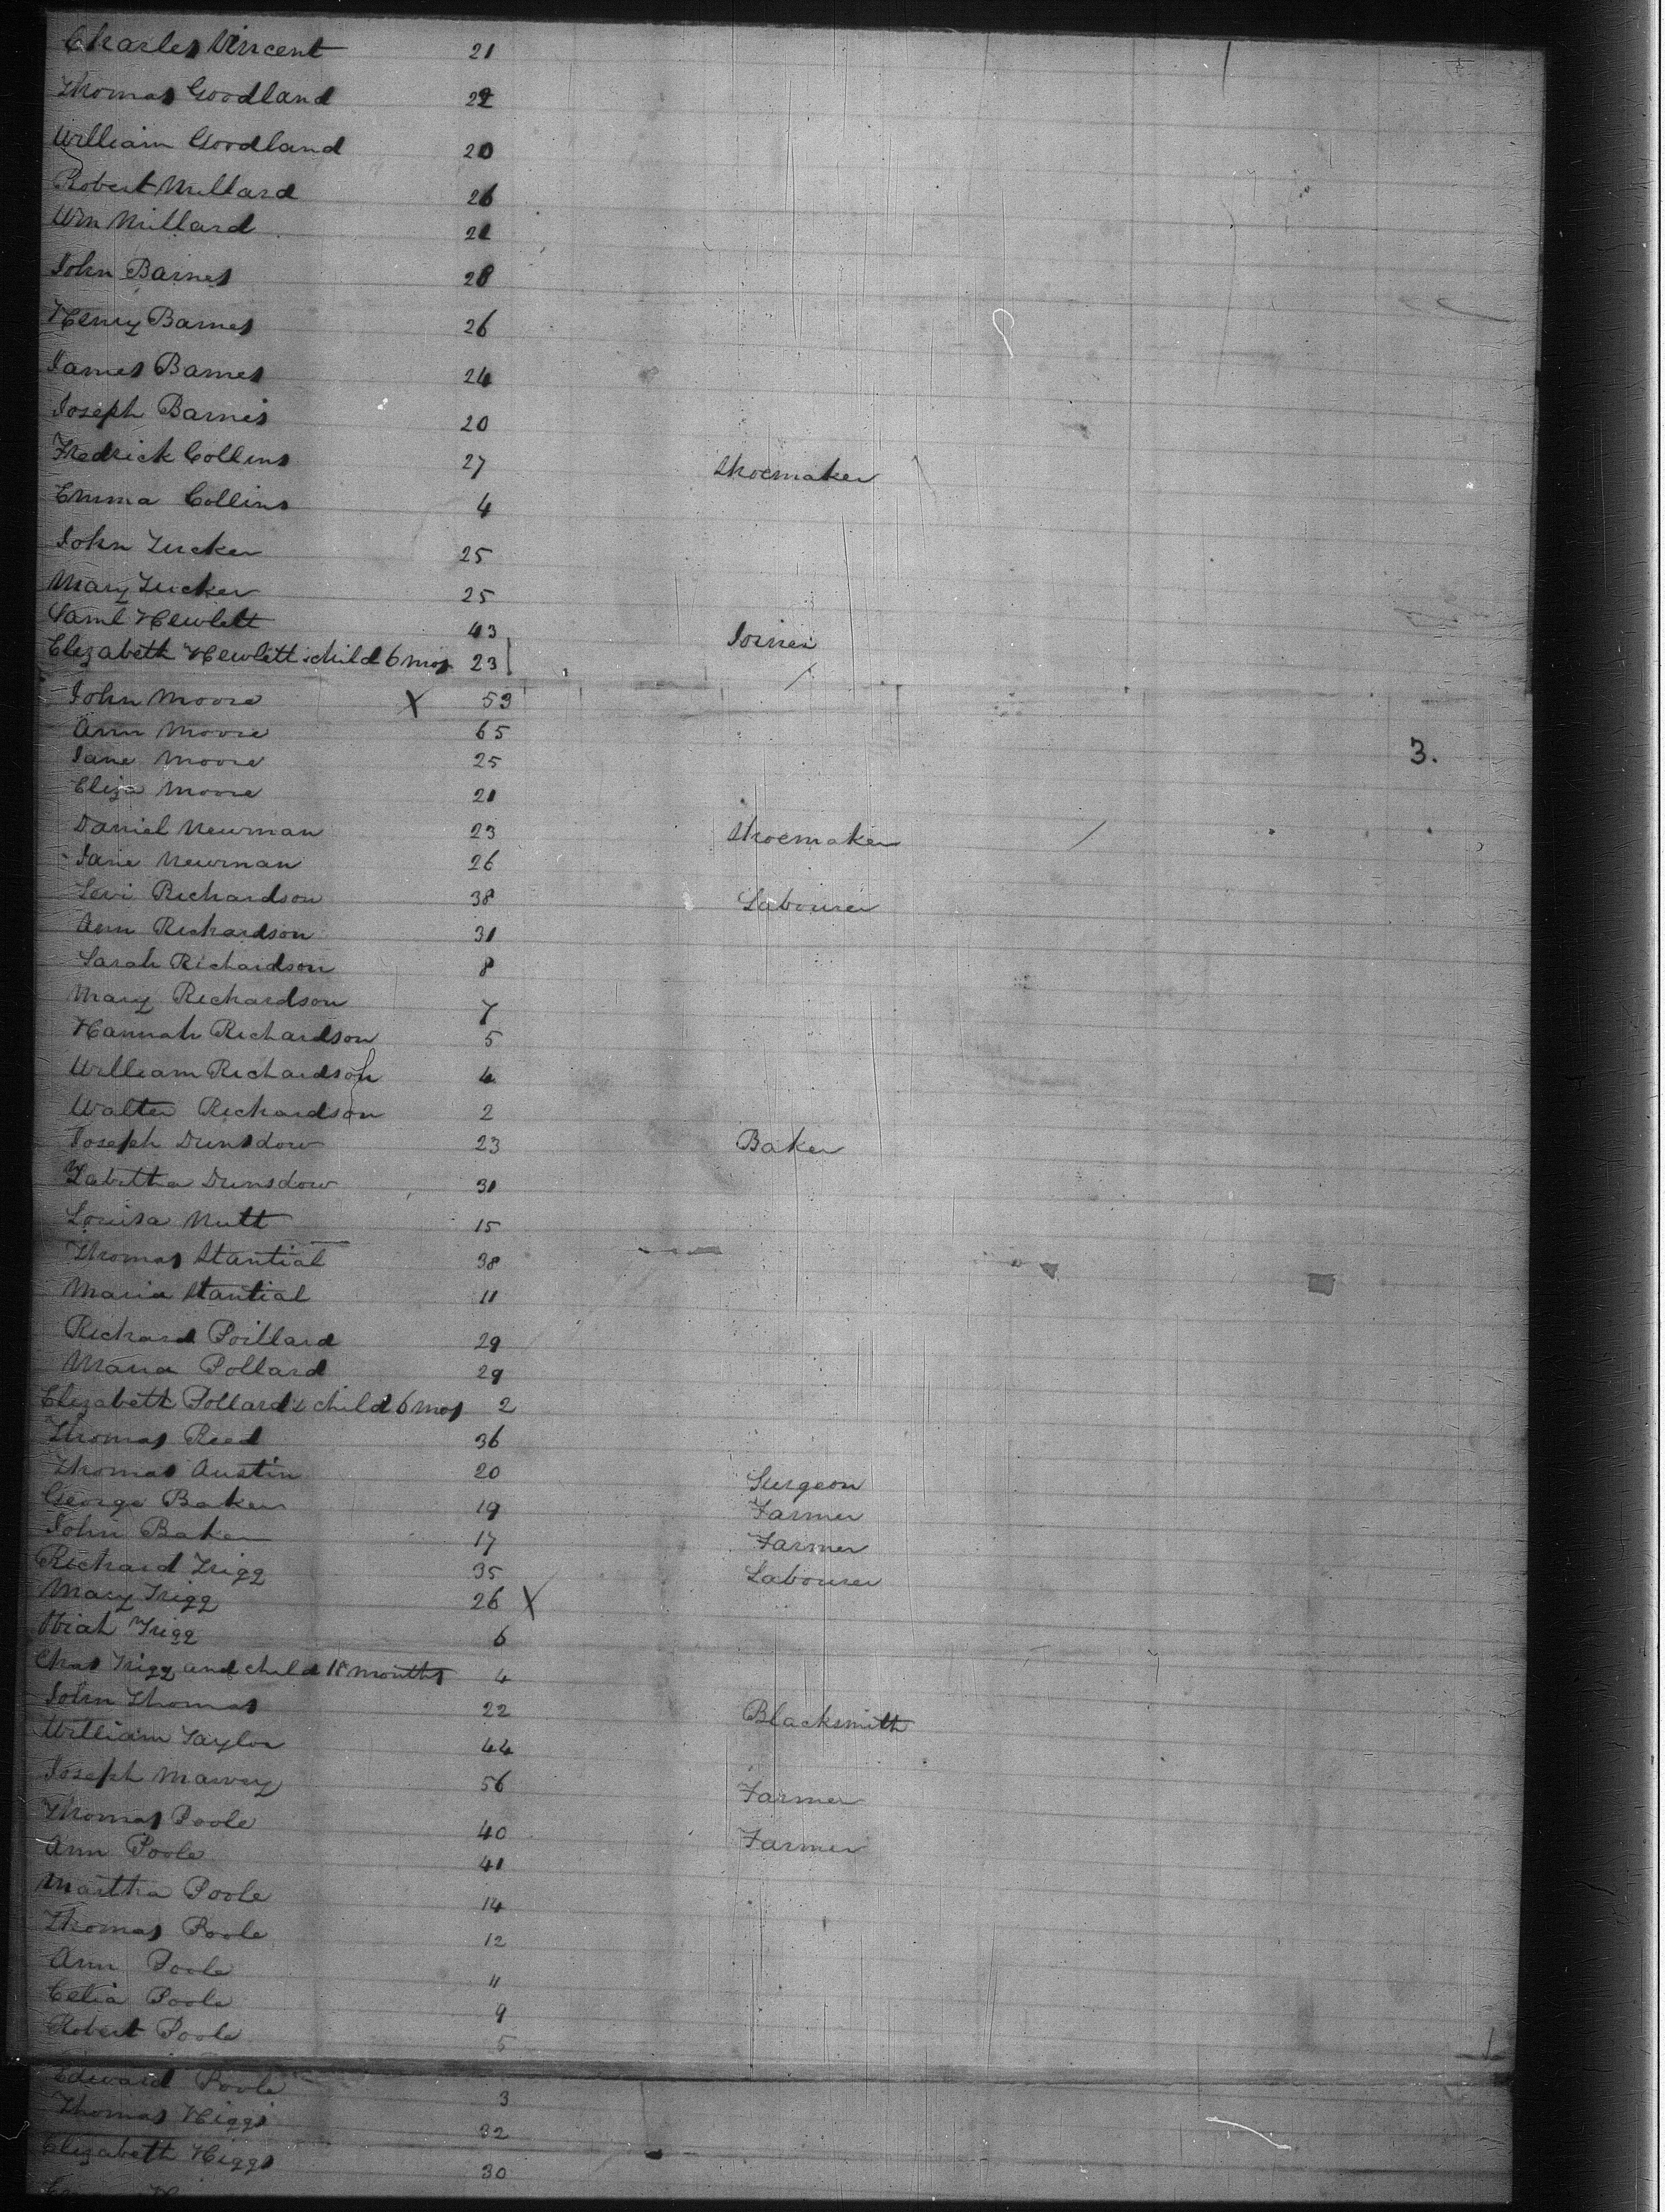 Charles Vincent 21
Thomas Goodland 22
William Goodland 20
Robert Millard 26
Wm Millard 21
John Barnes 28
Henry Barnes 26
James Barnes 24
Joseph Barnes 20
Fredrick Collins 27 Shoemaker
Emma Collins 4
John Tucker 25
Mary Tucker 25
Saml Hewlett 43 Joiner
Elizabeth Hewlett & child 6 mos 23
John Moore X 59
Ann Moore 65
Jane Moore 25
3.
Eliza Moore 21
Daniel Newman 23 Shoemaker
Jane Newman 26
Levi Richardson 38 Labourer
Ann Richardson 31
Sarah Richardson 8
Mary Richardson 7
Hannah Richardson 5
William Richardson 4
Walter Richardson 2
Joseph Dunsdow 23 Baker
Tabitha Dunsdow 31
Louisa Nutt 15
Thomas Stantial 38
Maria Stantial 11
Richard Poillard 29
Maria Pollard 29
Elizabeth Pollard & child 6 mos 2
Thomas Reed 36
Thomas Austin 20 Surgeon
George Baker 19 Farmer
John Baker 17 Farmer
Richard Trigg 35 Labourer
Mary Trigg 26 X
Trigg 6
Chas Trigg and child 18 months 4
John Thomas 22 Blacksmith
William Taylor 44
Joseph 56 Farmer
Thomas Poole 40 Farmer
Ann Poole 41
Martha Poole 14
Thomas Poole 12
Ann Poole 11
Celia Poole 9
Robert Poole 5
Edward Poole 3
Thomas Higgs 32
Elizabeth Higgs 30